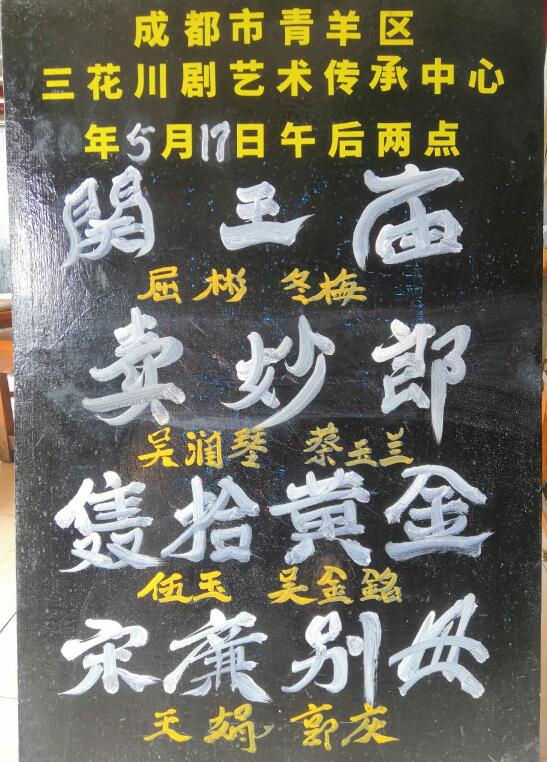 成都市青羊区
三花川剧艺术传承中心
20年5月17日午后两点
関王庙
屈彬 冬梅
卖妙郎
吴润琴 蔡玉兰
隻拾黄金
伍玉 吴金铭
宋廉别母
王娟 郭庆